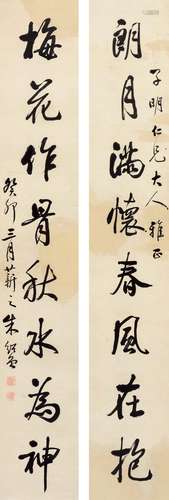 子明仁兄大人雅正
朗月满懷春風在抱
梅花作骨秋水為神
癸卯三月蕲之朱